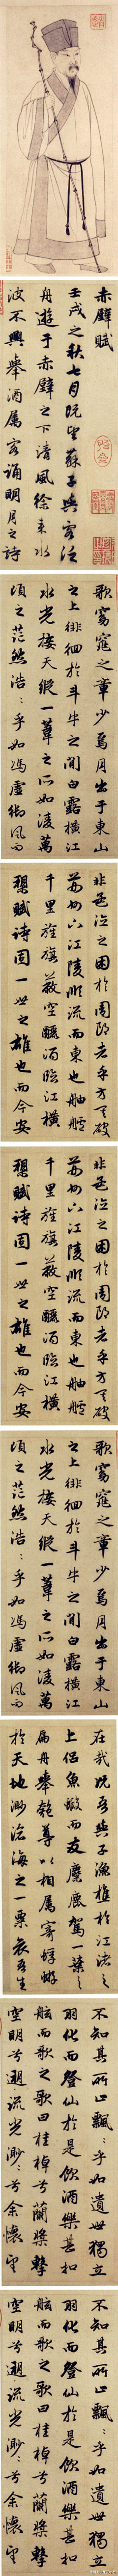 赤壁賦
壬戌之秋七月既望蘇子與客泛
舟遊于赤壁之下清風徐來水
波不興舉酒屬客誦明月之詩
歌窈窕之章少焉月出于東山
之上徘徊於斗牛之間白露橫江
水光接天縱一葦之所如淩萬
頃之茫然浩〻乎如馮虛御風而
非孟德之困於周郎者乎方其破
荊州下江陵順流而東也舳艫
千里旌旗蔽空釃酒臨江橫
槊賦詩固一世之雄也而今安
非孟德之困於周郎者乎方其破
荊州下江陵順流而東也舳艫
千里旌旗蔽空釃酒臨江橫
槊賦詩固一世之雄也而今安
歌窈窕之章少焉月出于東山
之上徘徊於斗牛之間白露橫江
水光接天縱一葦之所如淩萬
頃之茫然浩〻乎如馮虛御風而
在哉況吾與子漁樵於江渚之
上侶魚蝦而友麋鹿駕一葉之
扁舟舉匏尊以相屬寄蜉蝣
於天地渺滄海之一粟哀吾生
不知其所止飄〻乎如遺世獨立
羽化而登仙於是飲酒樂甚扣
舷而歌之歌曰桂棹兮蘭槳擊
空明兮遡流光渺〻兮余懷望
不知其所止飄〻乎如遺世獨立
羽化而登仙於是飲酒樂甚扣
舷而歌之歌曰桂棹兮蘭槳擊
空明兮遡流光渺〻兮余懷望